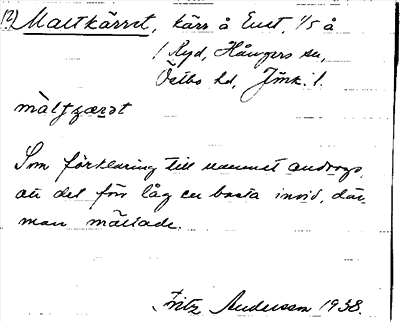 (2) Maltkärret, kärr å Enst, 1/5 å
1 Ryd, Hångers sn,
Östbo hd, Jönk. l.
màltçærət
Som förklaring till namnet androgs,
att det förr låg en basta invid, där
man mältade.
Fritz Andersson 1938.